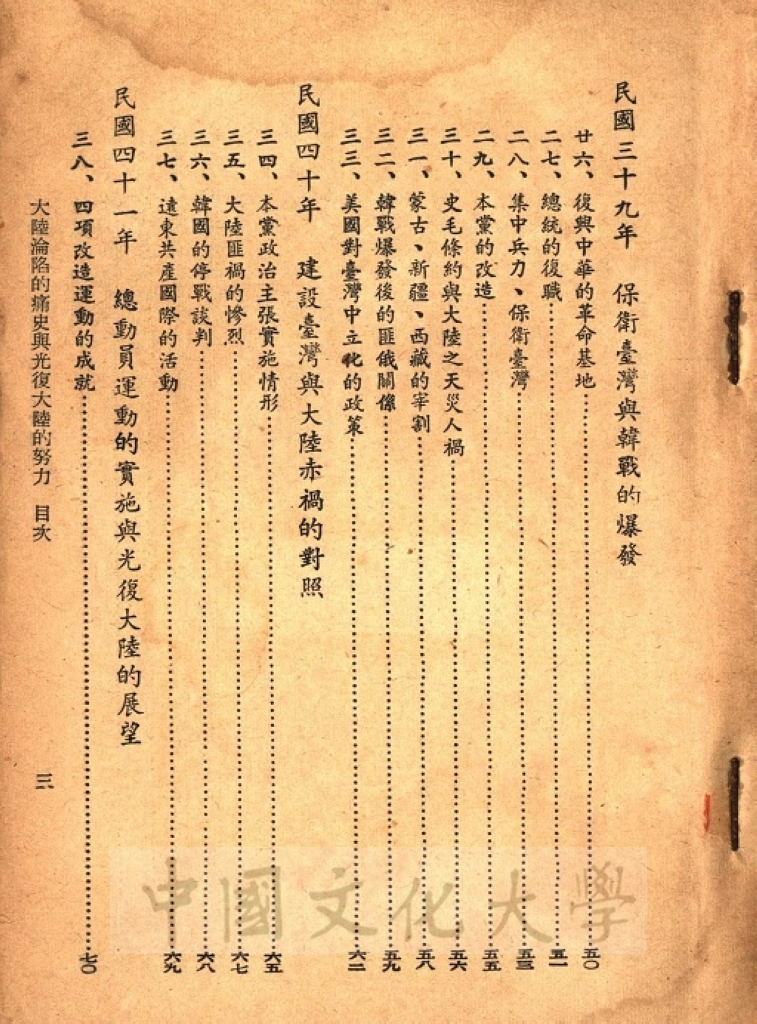 民國三十九年　保衛臺灣與韓戰的爆發
廿六、復興中華的革命基地……五〇
二七、總統的復職……五一
二八、集中兵力、保衛臺灣……五三
二九、本黨的改造……五五
三十、史毛條約與大陸之天災人禍……五六
三一、蒙古、新疆、西藏的宰割……五八
三二、韓戰爆發後的匪俄關係……五九
三三、美國對臺灣中立化的政策……六二
民國四十年　建設臺灣與大陸赤禍的對照
三四、本黨政治主張實施情形……六五
三五、大陸匪禍的慘烈……六七
三六、韓國的停戰談判……六八
三七、遠東共產國際的活動……六九
民國四十一年　總動員運動的實施與光復大陸的展望
三八、四項改造運動的成就……七〇
大陸淪陷的痛史與光復大陸的努力　目次
三
中國文化大學